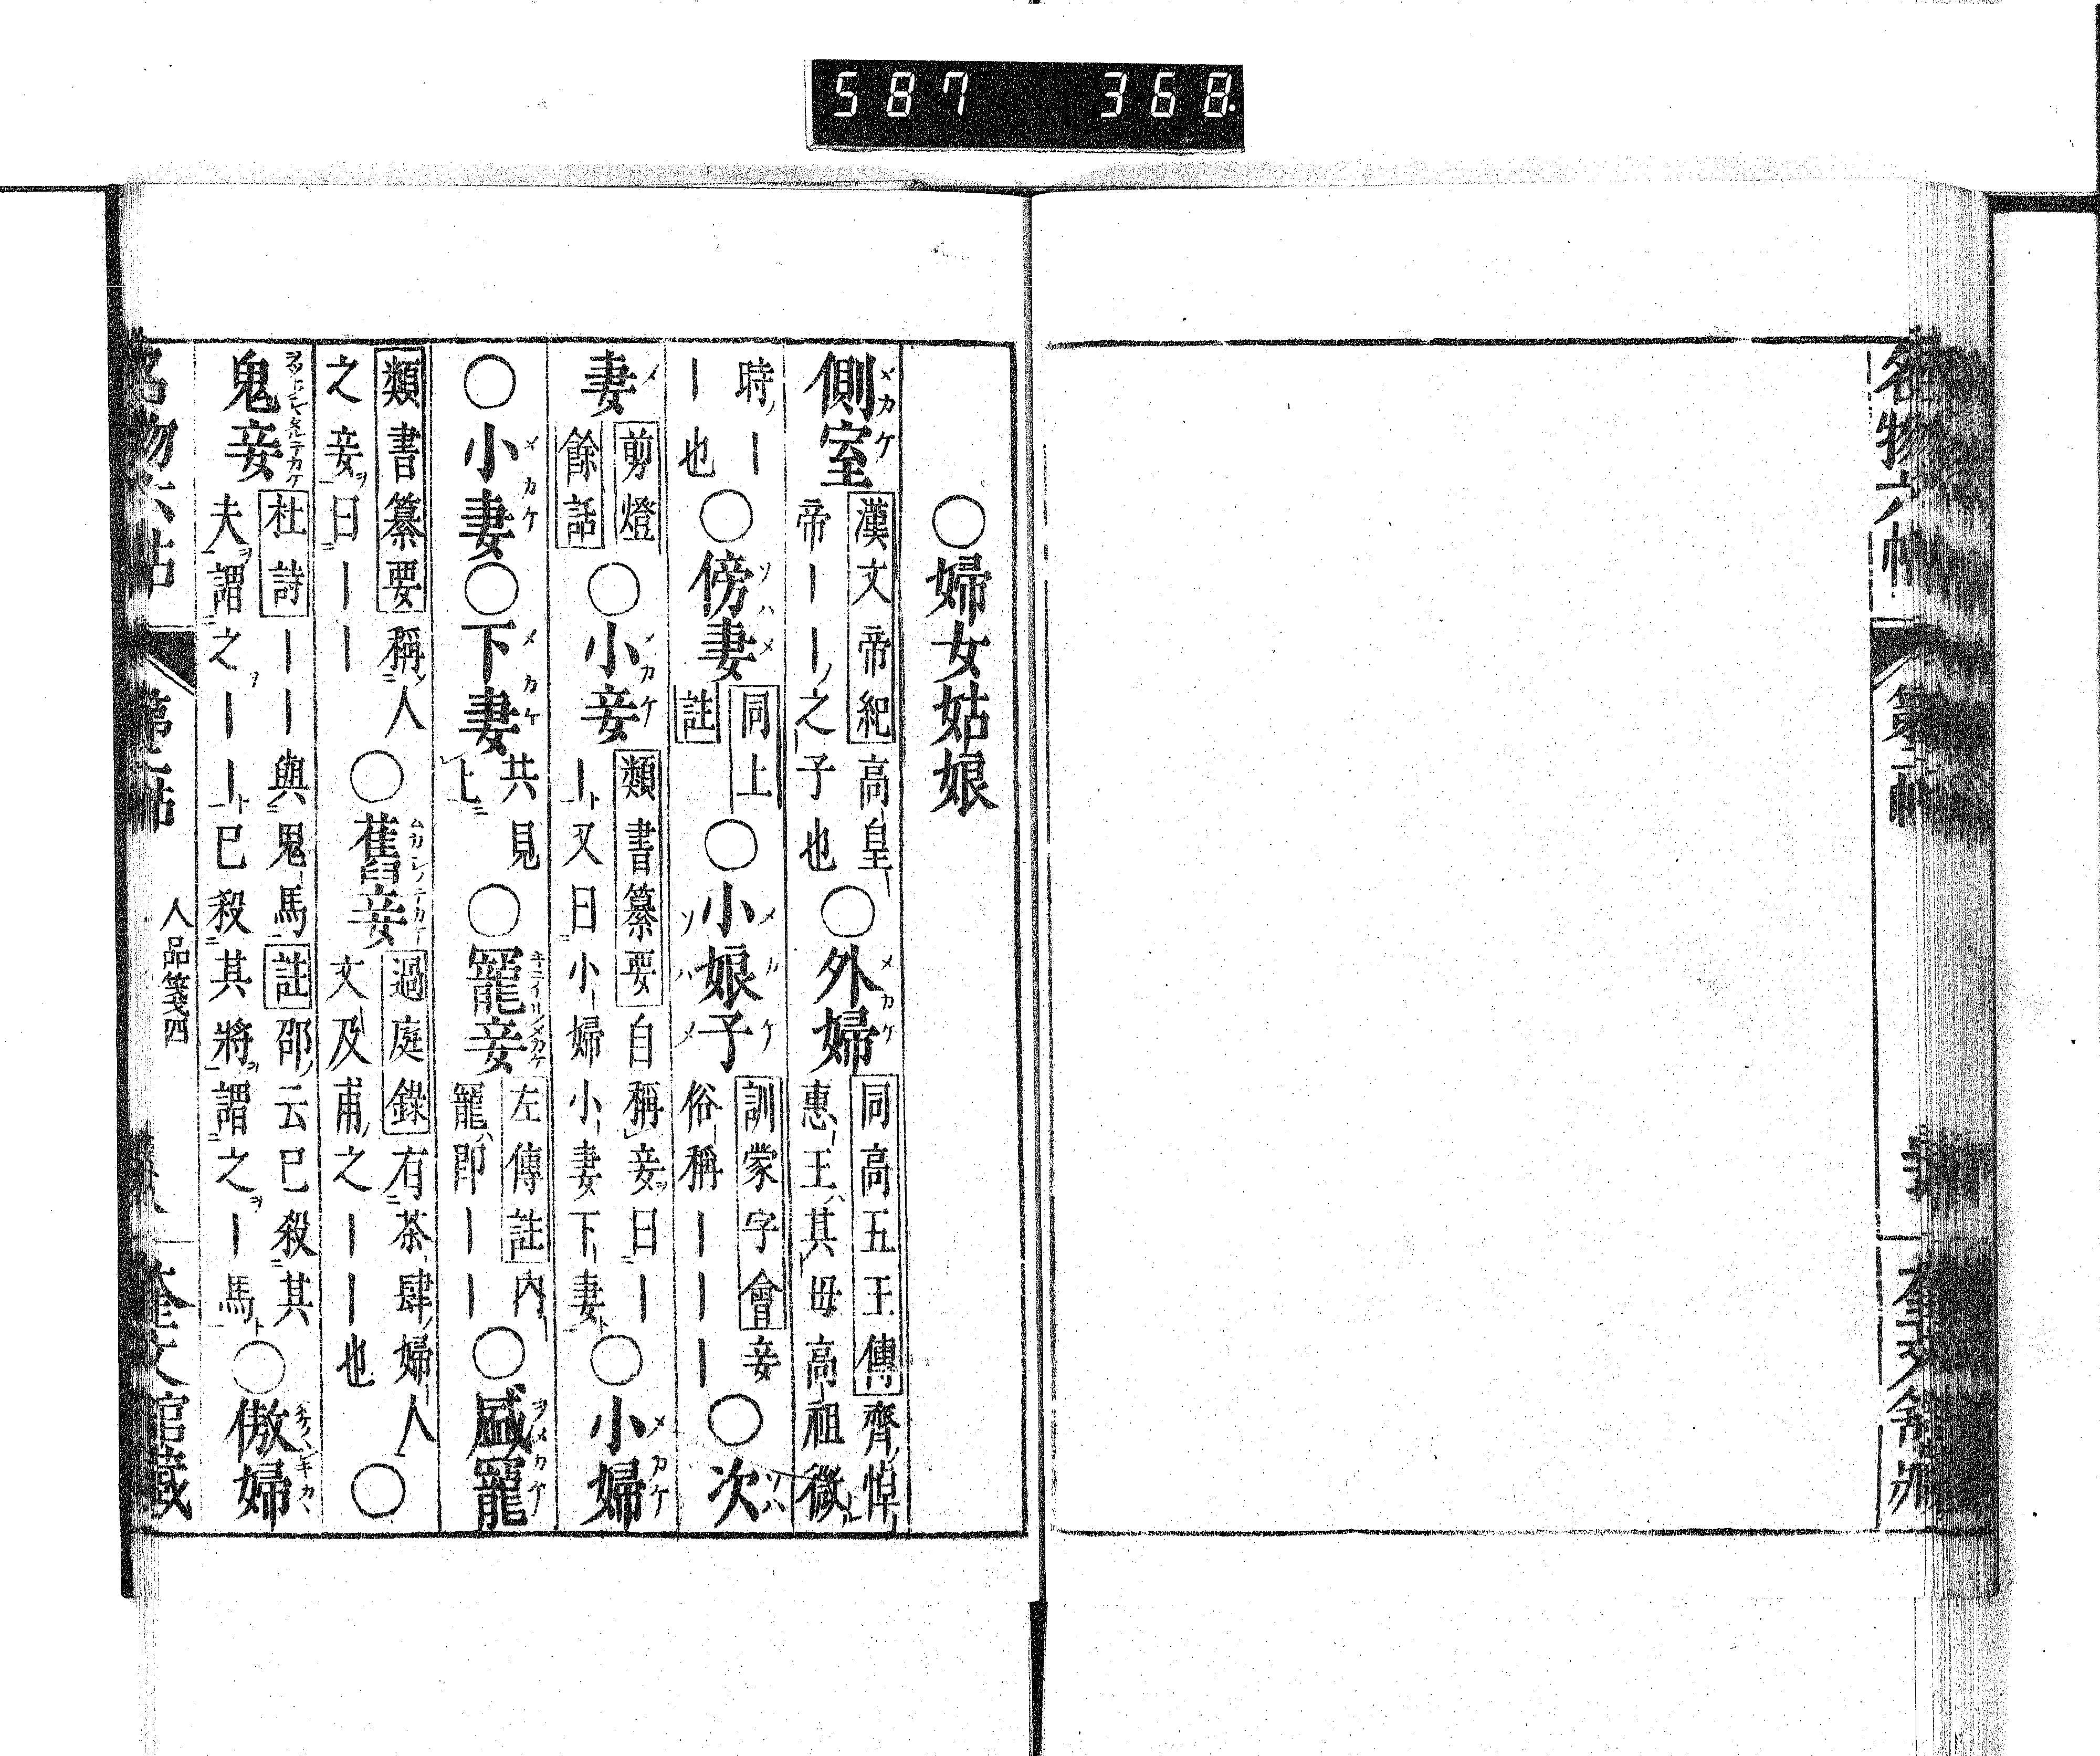 587 368
名物六帖 第二帖 奎文館藏
○婦女姑娘
側室メカケ 漢文帝紀 高皇帝――之子也 ○外婦メカケ 同高五王傳 齊悼惠王其母高祖微
時――也 ○傍妻ソハメ 同上註 ○小娘子メカケ ソハメ 訓蒙字會 妾俗稱――― ○次ソハ
妻メ 剪燈餘話 ○小妾メカケ 類書纂要 自稱妾曰――又曰小婦小妻下妻 ○小婦メカケ
○小妻メカケ ○下妻メカケ 共見上 ○寵妾キニイリメカケ 左傳註 內寵即―― ○臧寵ヲメカケ
類書纂要 稱人之妾曰―― ○舊妾ムカシノテカケ 過庭錄 有茶肆婦人文及甫之――也 ○
鬼妾 杜詩 ――與鬼馬 註 邵云已殺其夫謂之――已殺其將謂之―馬 ○傲婦
名物六帖 第二帖 人品箋四 奎文館藏